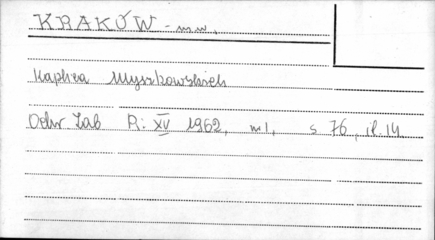 KRAKÓW - m.w.
Kaplica Myszkowskich
Ochr Zab R: XV 1962, nr 1, s 76, il. 14